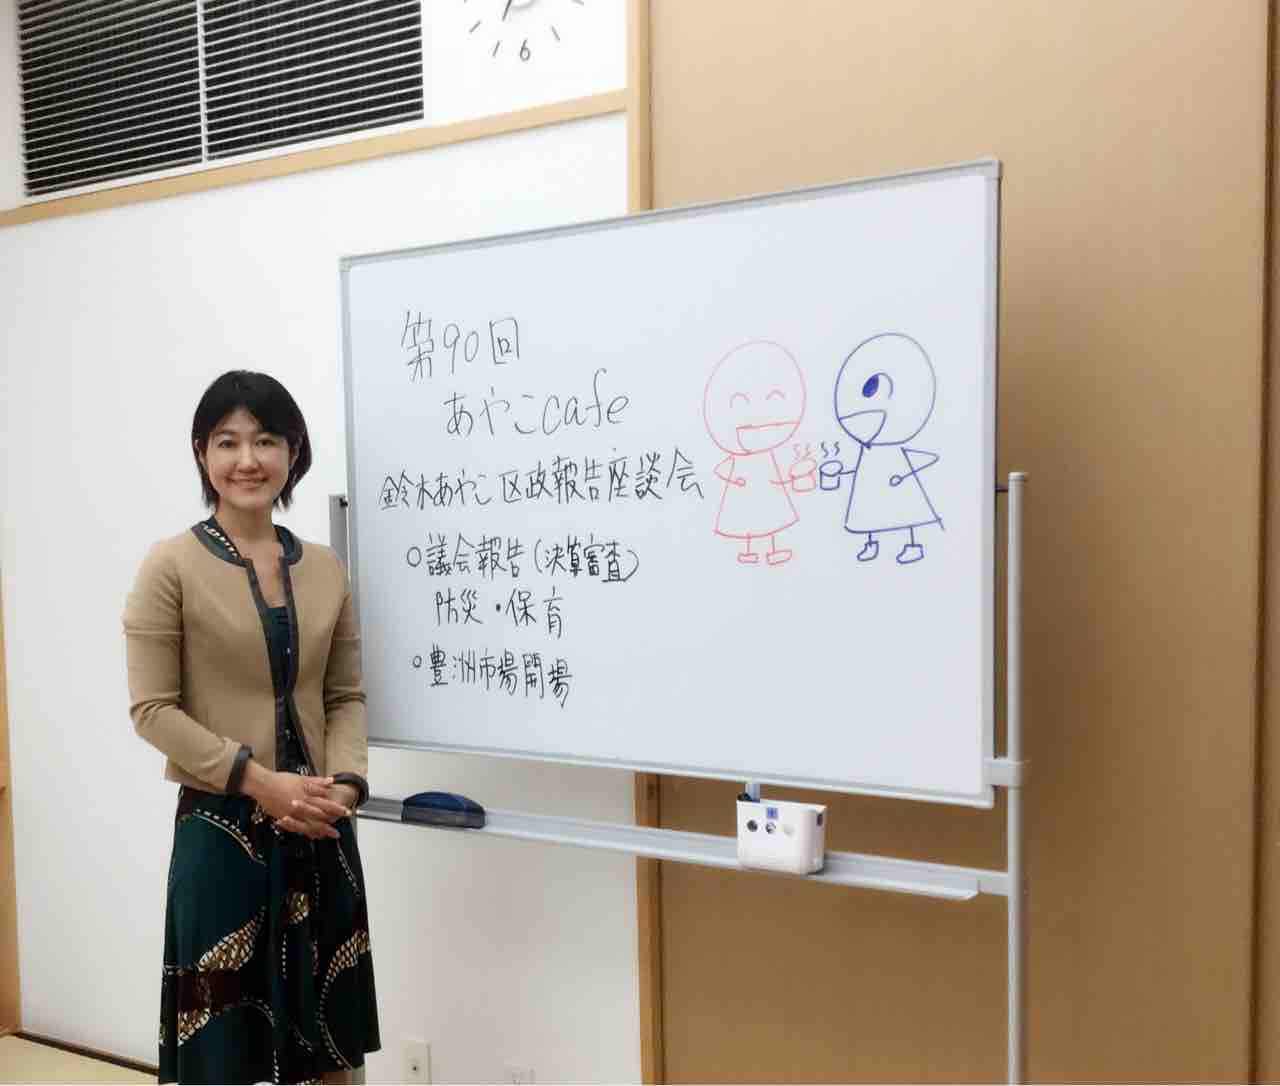 6
第90回
あやこcafe
鈴木あやこ区政報告座談会
○議会報告(決算審査)
防災・保育
○豊洲市場開場